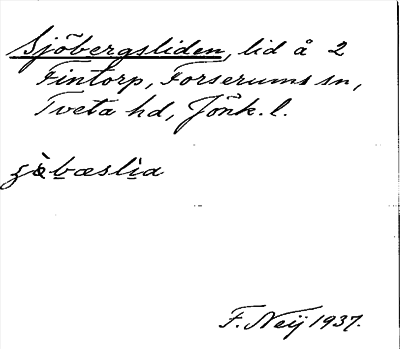 Sjöbergsliden, lid å 2
Fintorp, Forserums sn,
Tveta hd, Jönk. l.
F. Neij 1937.